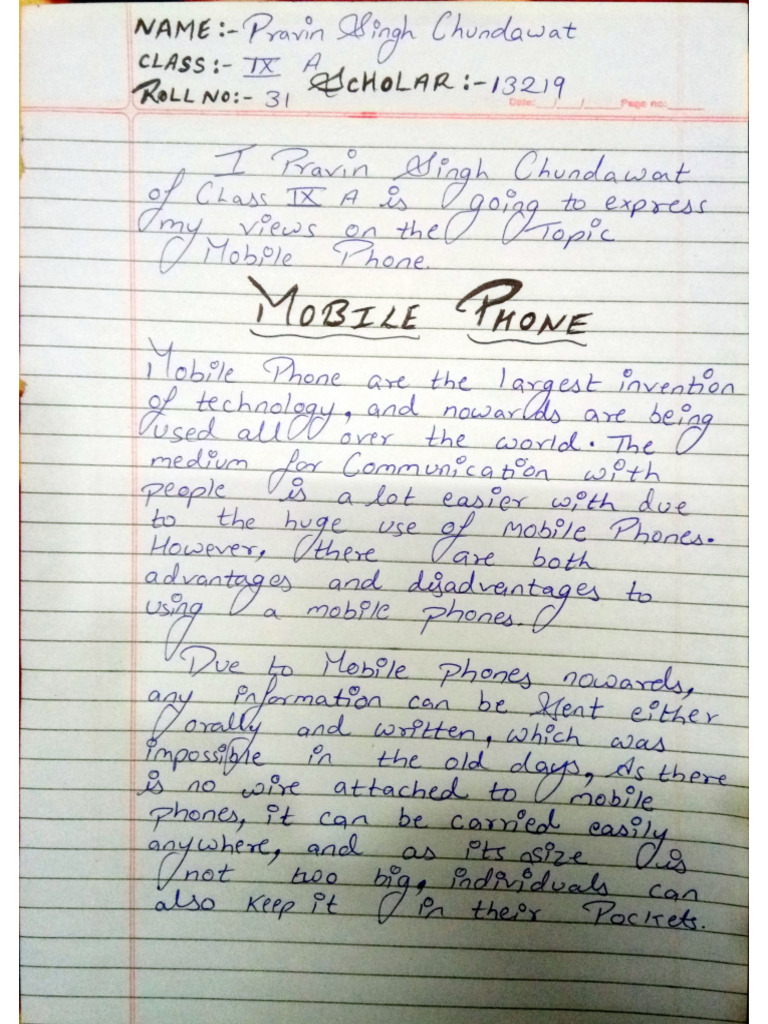 NAME:- Pravin Singh Chundawat
CLASS:- IX A
ROLL NO:- 31 SCHOLAR:-13219
Date: __/__/____ Page no:_____
I Pravin Singh Chundawat
of Class IX A is going to express
my views on the Topic
Mobile Phone.
MOBILE PHONE
Mobile Phone are the largest invention
of technology, and nowards are being
used all over the world. The
medium for Communication with
people is a lot easier with due
to the huge use of mobile Phones.
However, there are both
advantages and disadvantages to
using a mobile phones.
Due to Mobile phones nowards,
any information can be Sent either
orally and written, which was
impossible in the old days, As there
is no wire attached to mobile
phones, it can be carried easily
anywhere, and as its size is
not too big, individuals can
also keep it in their Pockets.